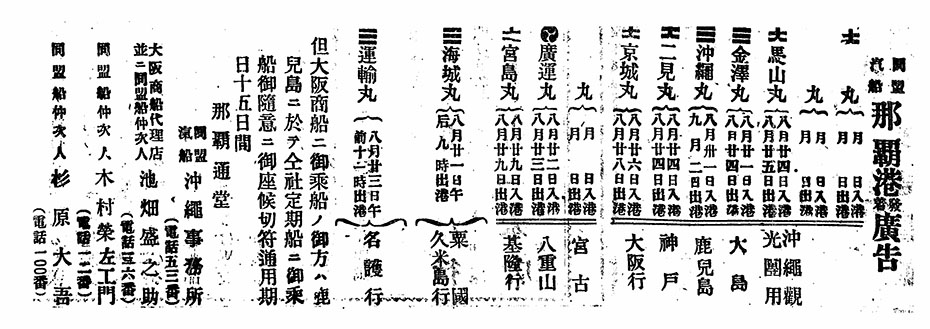 同盟汽船 那覇港発着廣告
丸 月 日入港 月 日出港
丸 月 日入港 月 日出港
馬山丸 八月廿四日入港 八月廿五日出港 沖繩觀光團用
金澤丸 八月廿一日入港 八月廿四日出港 大島
沖繩丸 八月卅一日入港 九月二日出港 鹿兒島
二見丸 八月廿四日入港 八月廿四日出港 神戸
京城丸 八月廿六日入港 八月廿八日出港 大阪行
丸 月 日入港 月 日出港 宮古
廣運丸 八月廿二日入港 八月廿三日出港 八重山
宮島丸 八月廿九日入港 八月廿九日出港 基隆行
海城丸 八月廿一日午后九時出港 粟國 久米島行
運輸丸 八月廿三日午前十一時出港 名護行
但大阪商船ニ御乘船ノ御方ハ鹿
兒島ニ於テ仝社定期船ニ御乘
船御隨意ニ御座候切符通用期
日十五日間
那覇通堂
同盟汽船 沖繩事務所
(電話五三番)
大阪商船代理店
並ニ同盟船仲次人 池畑盛之助
(電話三六番)
同盟船仲次人 木村榮左工門
(電話一二番)
同盟船仲次人 杉原大吾
(電話一〇番)